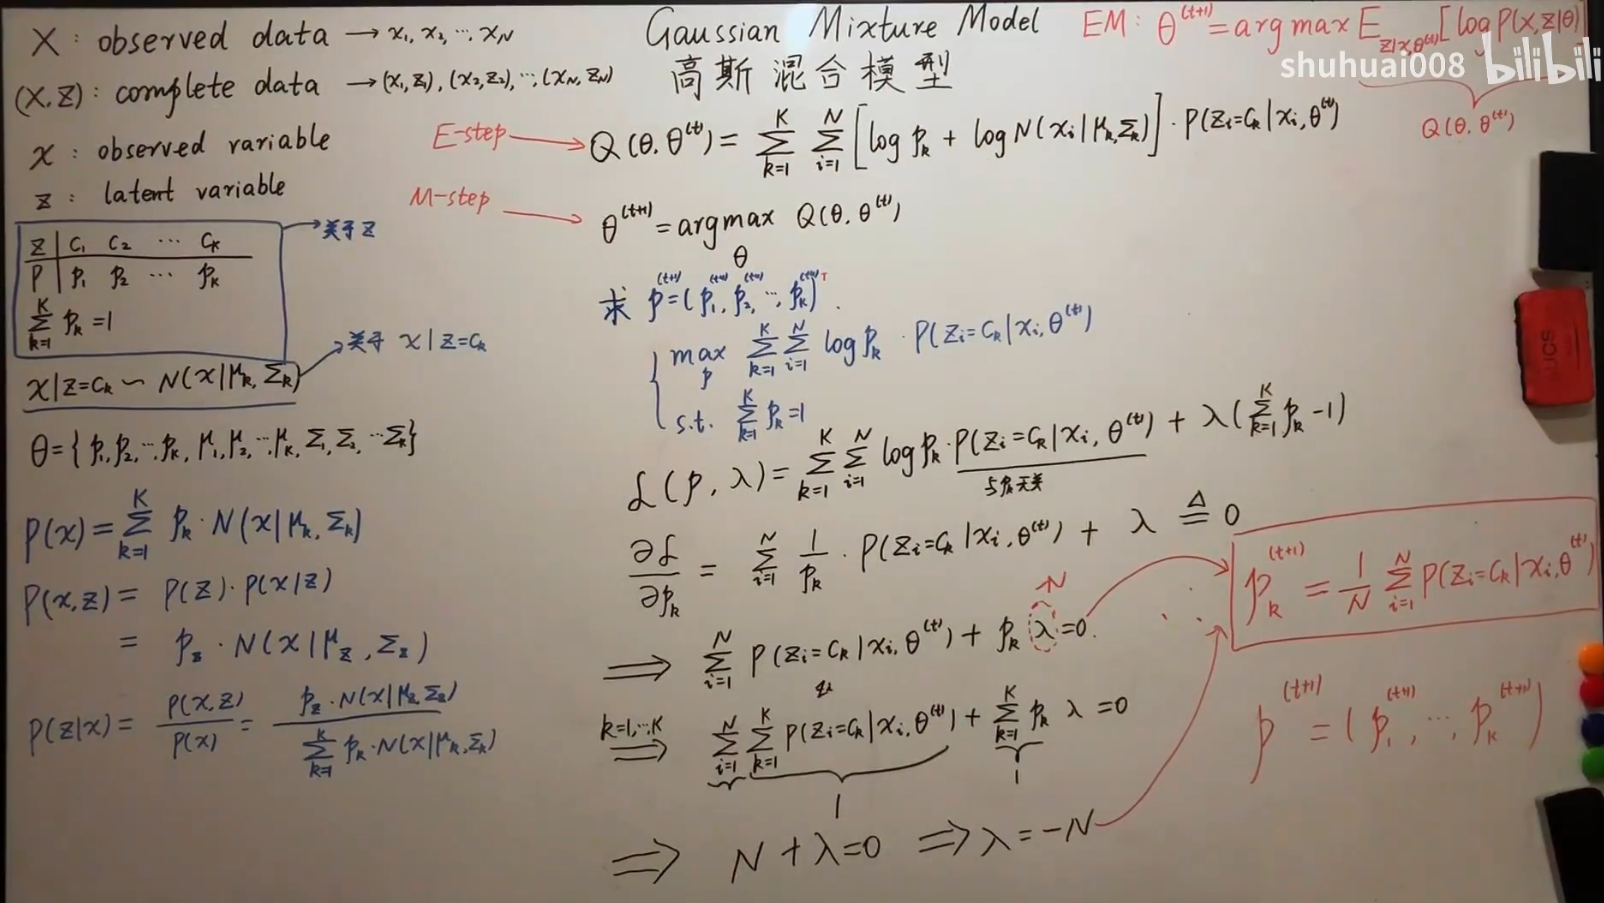 X : observed data → x₁, x₂, ⋯, x_N
(X, Z) : complete data → (x₁, z₁), (x₂, z₂), ⋯, (x_N, z_N)
x : observed variable
z : latent variable
z | C₁ C₂ ⋯ C_k
p | p₁ p₂ ⋯ p_k
∑_{k=1}^{K} p_k = 1
→ 关于 z
x|z=C_k ∼ N(x|μ_k, Σ_k)
→ 关于 x|z=C_k
θ = { p₁, p₂, ⋯ p_k, μ₁, μ₂, ⋯ μ_k, Σ₁, Σ₂, ⋯ Σ_k }
p(x) = ∑_{k=1}^{K} p_k · N(x|μ_k, Σ_k)
p(x,z) = p(z) · p(x|z)
= p_z · N(x|μ_z, Σ_z)
p(z|x) = p(x,z) / p(x) = p_z · N(x|μ_z, Σ_z) / ∑_{k=1}^{K} p_k · N(x|μ_k, Σ_k)
Gaussian Mixture Model
高斯混合模型
EM: θ^{(t+1)} = arg max E_{z|x,θ^{(t)}} [log P(x,z|θ)]
Q(θ, θ^{(t)})
shuhuai008 bilibili
E-step → Q(θ, θ^{(t)}) = ∑_{k=1}^{K} ∑_{i=1}^{N} [log p_k + log N(x_i|μ_k, Σ_k)] · P(z_i=C_k|x_i, θ^{(t)})
M-step → θ^{(t+1)} = arg max_θ Q(θ, θ^{(t)})
求 p^{(t+1)} = (p₁^{(t+1)}, p₂^{(t+1)}, ⋯, p_k^{(t+1)})^T.
{ max_p ∑_{k=1}^{K} ∑_{i=1}^{N} log p_k · P(z_i=C_k|x_i, θ^{(t)})
s.t. ∑_{k=1}^{K} p_k = 1
L(p, λ) = ∑_{k=1}^{K} ∑_{i=1}^{N} log p_k · P(z_i=C_k|x_i, θ^{(t)}) + λ(∑_{k=1}^{K} p_k - 1)
与p_k无关
∂L/∂p_k = ∑_{i=1}^{N} 1/p_k · P(z_i=C_k|x_i, θ^{(t)}) + λ ≜ 0
-N
⟹ ∑_{i=1}^{N} P(z_i=C_k|x_i, θ^{(t)}) + p_k λ = 0.
k=1,⋯K ⟹ ∑_{i=1}^{N} ∑_{k=1}^{K} P(z_i=C_k|x_i, θ^{(t)}) + ∑_{k=1}^{K} p_k λ = 0
1 1
⟹ N + λ = 0 ⟹ λ = -N
p_k^{(t+1)} = 1/N ∑_{i=1}^{N} P(z_i=C_k|x_i, θ^{(t)})
p^{(t+1)} = (p₁^{(t+1)}, ⋯, p_k^{(t+1)})
AUCS